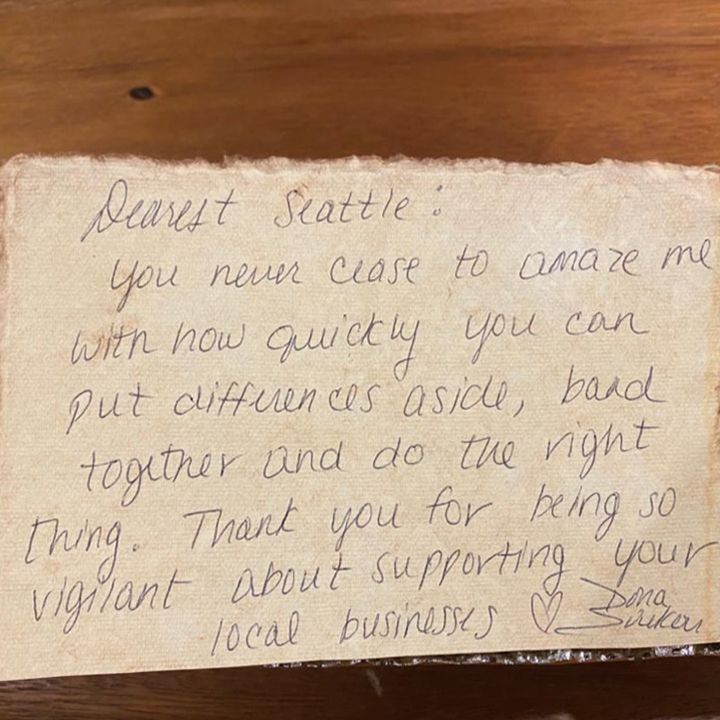 Dearest Seattle:
you never cease to amaze me
with how quickly you can
put differences aside, band
together and do the right
thing. Thank you for being so
vigilant about supporting your
local businesses ♡ Dona